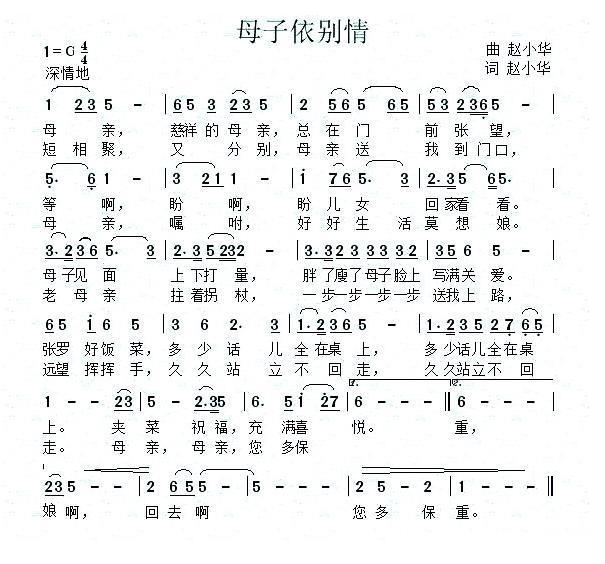 母子依别情
1=G 4/4
曲 赵小华
深情地
词 赵小华
1 23 5 - | 65 3 23 5 | 2 56 5 65 | 53 236 5 - |
母 亲， 慈祥的母亲，总在门 前张望，
短相聚， 又 分别，母亲送 我到门口，
5· 6 1 - | 3 21 1 - | i 76 5· 3 | 2·3 5 65· |
等 啊， 盼 啊， 盼儿女 回家看看。
母 亲， 嘱 咐， 好好生活莫想娘。
3·23 36 5· 3 | 2·35 5232 - | 3·323 2332 | 335 6 5 - |
母子见面 上下打量， 胖了瘦了母子脸上 写满关爱。
老母亲 拄着拐杖， 一步一步一步一步 送我上路，
65 i 6 5 | 3 6 2· 3 | 1·236 5 - | 1·235 27 65 |
张罗好饭菜，多少话儿全在桌上， 多少话儿全在桌
远望挥挥手，久久站立不回走， 久久站立不回
1 - - 23 | 5 - 2·35 | 6· 5i 27 | 6 - - - || 6 - - |
上。 夹菜 祝福，充满喜悦。 重，
走。 母亲， 母亲，您多保
235 - - | 2 65 5 - | 5 - - - | 2 5 - 2 | 1 - - - ||
娘啊， 回去啊 您多保重。